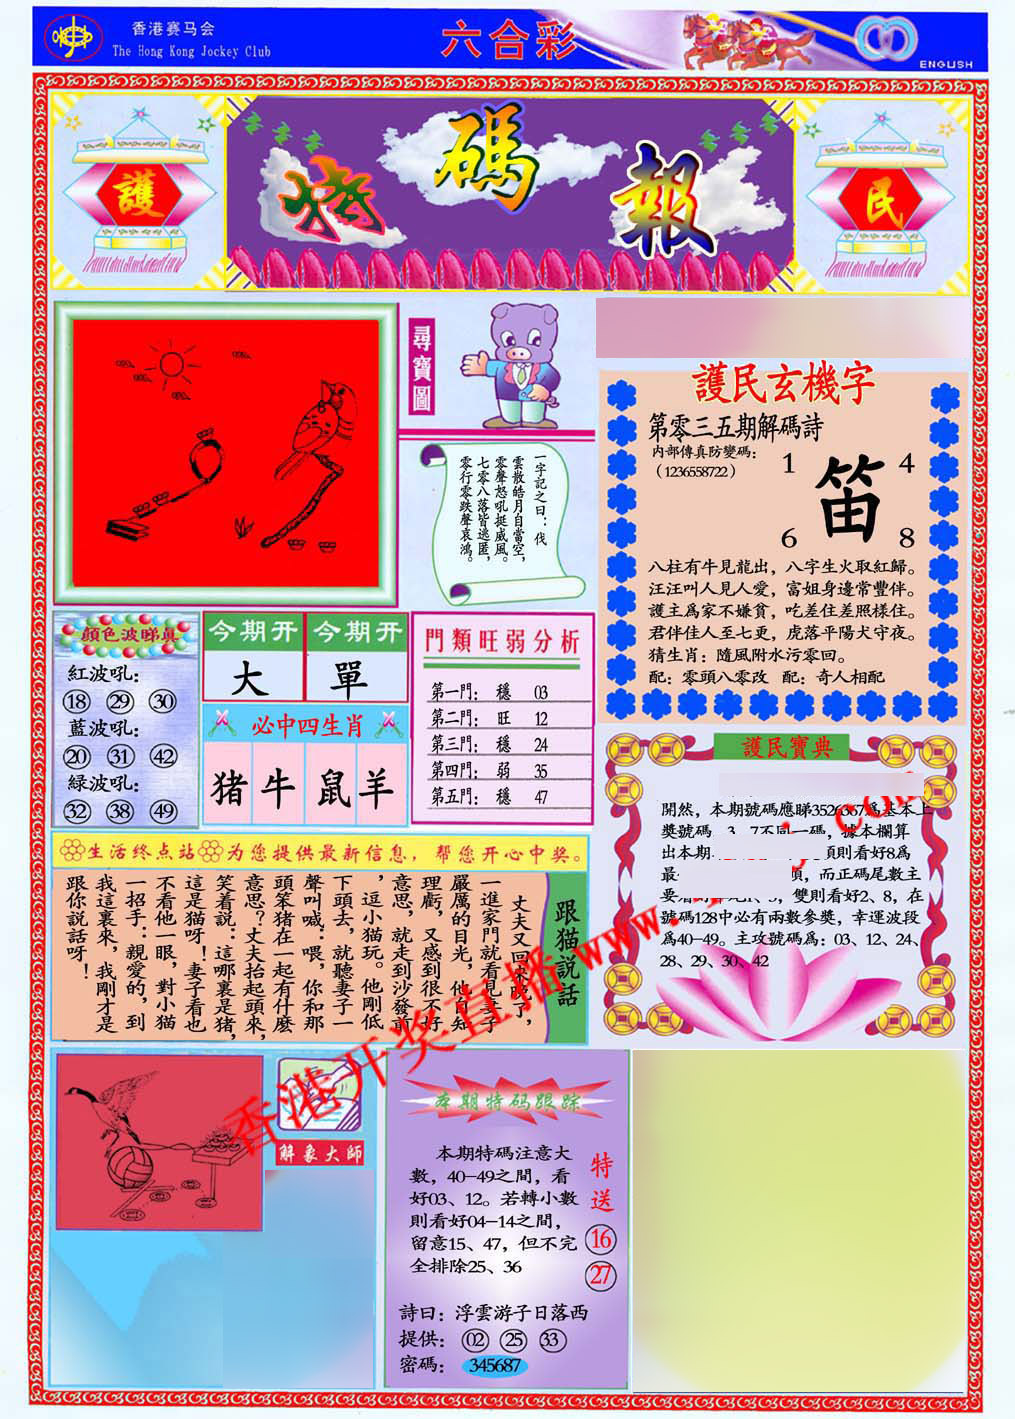 香港赛马会
The Hong Kong Jockey Club
六合彩
ENGLISH
護
特碼報
民
尋寶圖
一字記之曰：伐
雲散皓月自當空，
零聲怒吼挺威風。
七零八落皆逃匿，
零行零跌聲哀鴻。
護民玄機字
第零三五期解碼詩
内部傳真防變碼：
（1236558722）
1
4
笛
6
8
八柱有牛見龍出，八字生火取紅歸。
汪汪叫人見人愛，富姐身邊常豐伴。
護主爲家不嫌貧，吃差住差照樣住。
君伴佳人至七更，虎落平陽犬守夜。
猜生肖：隨風附水污零回。
配：零頭八零改 配：奇人相配
顔色波睇真
紅波吼：
18 29 30
藍波吼：
20 31 42
緑波吼：
32 38 49
今期开 今期开
大 單
必中四生肖
猪 牛 鼠 羊
門類旺弱分析
第一門： 穩 03
第二門： 旺 12
第三門： 穩 24
第四門： 弱 35
第五門： 穩 47
護民寶典
開然，本期號碼應睇3526367爲基本上
獎號碼 3、7不同一碼，據本欄算
出本期 頭則看好8爲
最 頭，而正碼尾數主
要 雙則看好2、8，在
號碼128中必有兩數參獎，幸運波段
爲40-49。主攻號碼爲：03、12、24、
28、29、30、42
生活终点站 为您提供最新信息，帮您开心中奖。
跟猫説話
丈夫又回來晚了，
一進家門就看見妻子
嚴厲的目光，他自知
理虧，又感到很不好
意思，就走到沙發前
，逗小猫玩。他剛低
下頭去，就聽妻子一
聲叫喊：喂，你和那
頭笨猪在一起有什麽
意思？丈夫抬起頭來，
笑着説：這哪裏是猪，
這是猫呀！妻子看也
不看他一眼，對小猫
一招手：親愛的，到
我這裏來，我剛才是
跟你説話呀！
香港开奖直播 www.
.com
解象大師
本期特码跟踪
本期特碼注意大
數，40-49之間，看
好03、12。若轉小數
則看好04-14之間，
留意15、47，但不完
全排除25、36
特送
16
27
詩曰：浮雲游子日落西
提供： 02 25 33
密碼： 345687